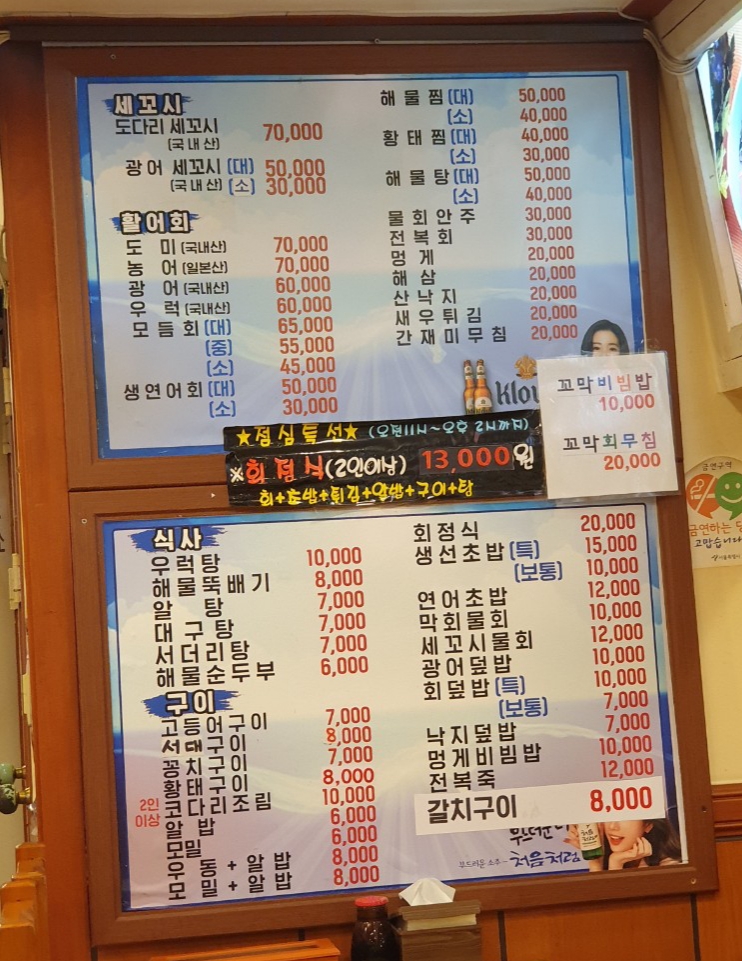 세꼬시
도다리 세꼬시 70,000
(국내산)
광어 세꼬시 (대) 50,000
(국내산) (소) 30,000
활어회
도 미 (국내산) 70,000
농 어 (일본산) 70,000
광 어 (국내산) 60,000
우 럭 (국내산) 60,000
모듬회 (대) 65,000
(중) 55,000
(소) 45,000
생연어회 (대) 50,000
(소) 30,000
해물찜 (대) 50,000
(소) 40,000
황태찜 (대) 40,000
(소) 30,000
해물탕 (대) 50,000
(소) 40,000
물회안주 30,000
전복회 30,000
멍게 20,000
해삼 20,000
산낙지 20,000
새우튀김 20,000
간재미무침 20,000
Klou
꼬막비빔밥
10,000
꼬막회무침
20,000
★점심특선★
※회정식 (2인이상) 13,000원
식사
우럭탕 10,000
해물뚝배기 8,000
알 탕 7,000
대구탕 7,000
서더리탕 7,000
해물순두부 6,000
구이
고등어구이 7,000
서대구이 8,000
꽁치구이 7,000
황태구이 8,000
2인이상 코다리조림 10,000
알 밥 6,000
모밀 6,000
우 동 + 알 밥 8,000
모 밀 + 알 밥 8,000
회정식 20,000
생선초밥 (특) 15,000
(보통) 10,000
연어초밥 12,000
막회물회 10,000
세꼬시물회 12,000
광어덮밥 10,000
회덮밥 (특) 10,000
(보통) 7,000
낙지덮밥 7,000
멍게비빔밥 10,000
전복죽 12,000
갈치구이 8,000
부드러운 소주~ 처음처럼
금연구역
금연하는 당
고맙습니다